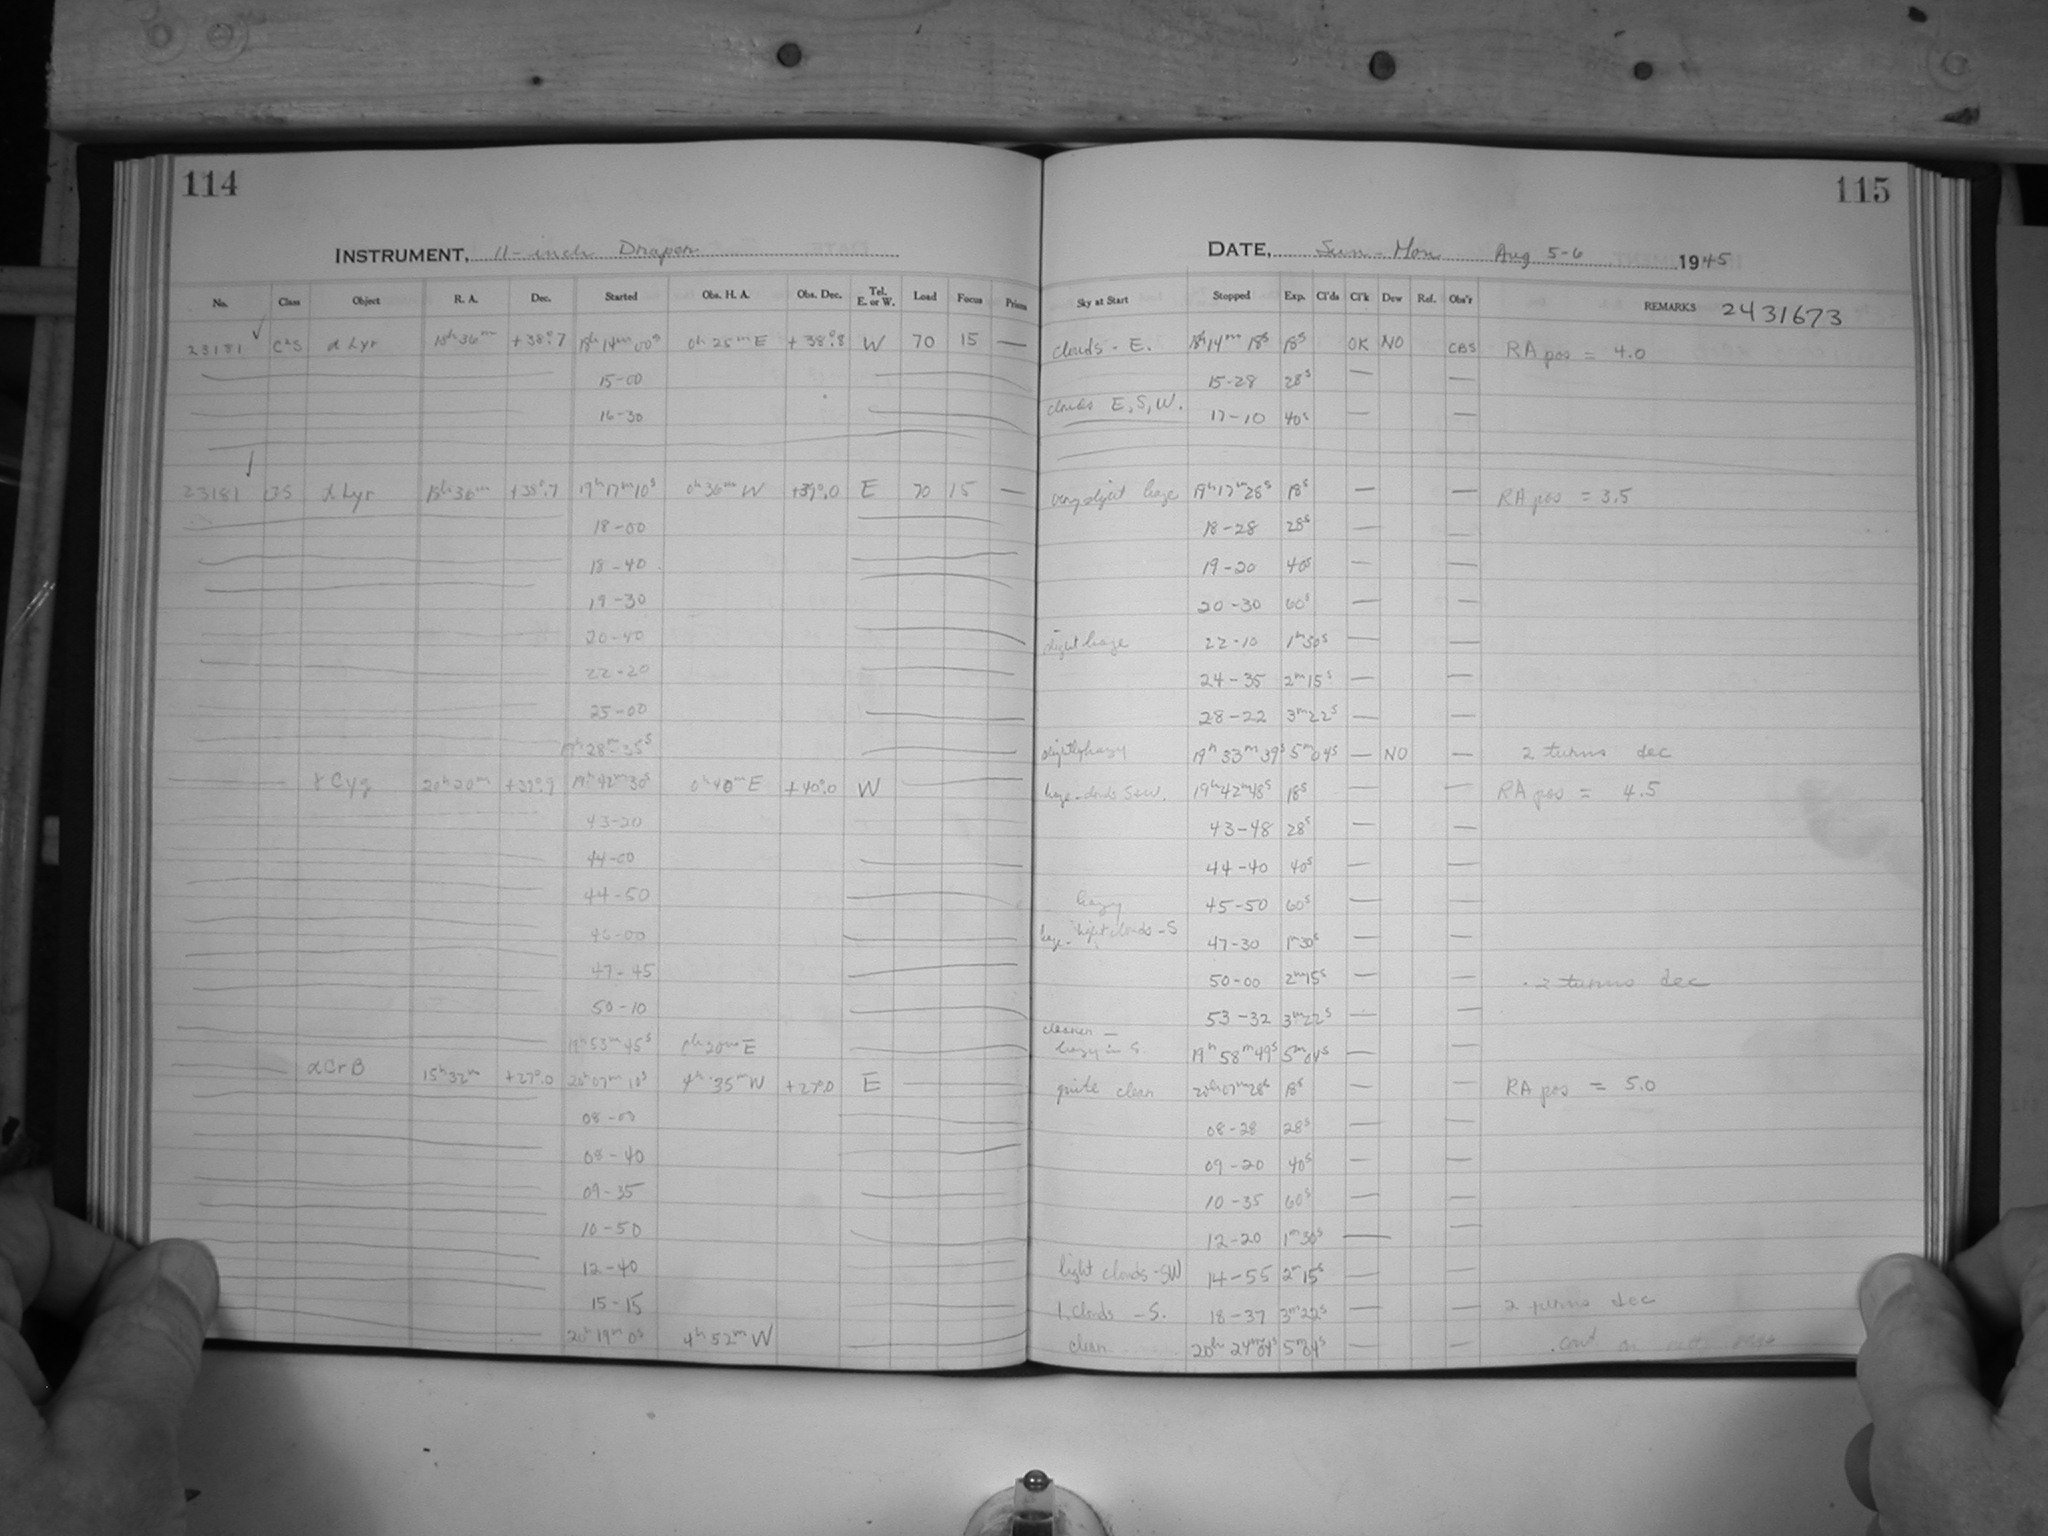 114
INSTRUMENT, 11-inch Draper
No. Class Object R. A. Dec. Started Obs. H. A. Obs. Dec. Tel. E. or W. Load Focus Prisms
23181 α Lyr 18h 36m +38°.7 18h 14m 00s 0h 25m E +38°.8 W 70 15 —
15-00
16-30
23181 α Lyr 18h 36m +38°.7 19h 17m 10s 0h 36m W +39°.0 E 70 15 —
18-00
18-40
19-30
20-40
22-20
25-00
19h 28m 35s
γ Cyg 20h 20m +39°.9 19h 42m 30s 0h 40m E +40°.0 W
43-20
44-00
44-50
46-00
47-45
50-10
19h 53m 45s 0h 20m E
α CrB 15h 32m +27°.0 20h 07m 10s 4h 35m W +27°.0 E
08-00
08-40
09-35
10-50
12-40
15-15
20h 19m 0s 4h 52m W
115
DATE, Sun-Mon Aug 5-6 1945
Sky at Start Stopped Exp. Cl'ds Cl'k Dew Ref. Obs'r REMARKS 2431673
clouds - E. 18h 14m 18s 18s OK NO CBS RA pos = 4.0
15-28 28s — —
clouds E, S, W. 17-10 40s — —
very slight haze 19h 17m 28s 18s — — RA pos = 3.5
18-28 28s — —
19-20 40s — —
20-30 60s — —
slight haze 22-10 1m 30s — —
24-35 2m 15s — —
28-22 3m 22s — —
slightly hazy 19h 33m 39s 5m 04s — NO — 2 turns dec
haze-clouds S&W. 19h 42m 48s 18s — — RA pos = 4.5
43-48 28s — —
44-40 40s — —
hazy 45-50 60s — —
haze- light clouds - S 47-30 1m 30s — —
50-00 2m 15s — — 2 turns dec
53-32 3m 22s — —
clearer —
hazy in S. 19h 58m 49s 5m 04s — —
quite clear 20h 07m 28s 18s — — RA pos = 5.0
08-28 28s — —
09-20 40s — —
10-35 60s — —
12-20 1m 30s — —
light clouds - SW 14-55 2m 15s — —
l. clouds - S. 18-37 3m 22s — — 2 turns dec
clear 20h 24m 04s 5m 04s — — cont on next page